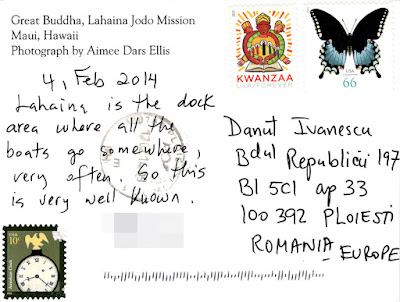 Great Buddha, Lahaina Jodo Mission
Maui, Hawaii
Photograph by Aimee Dars Ellis
4, Feb 2014
Lahaina is the dock
area where all the
boats go somewhere,
very often. So this
is very well known.
KWANZAA
USA/FOREVER
USA
66
Danut Ivanescu
Bdul Republicii 197
Bl 5C1 ap 33
100 392 PLOIESTI
ROMANIA - EUROPE
USA
10¢